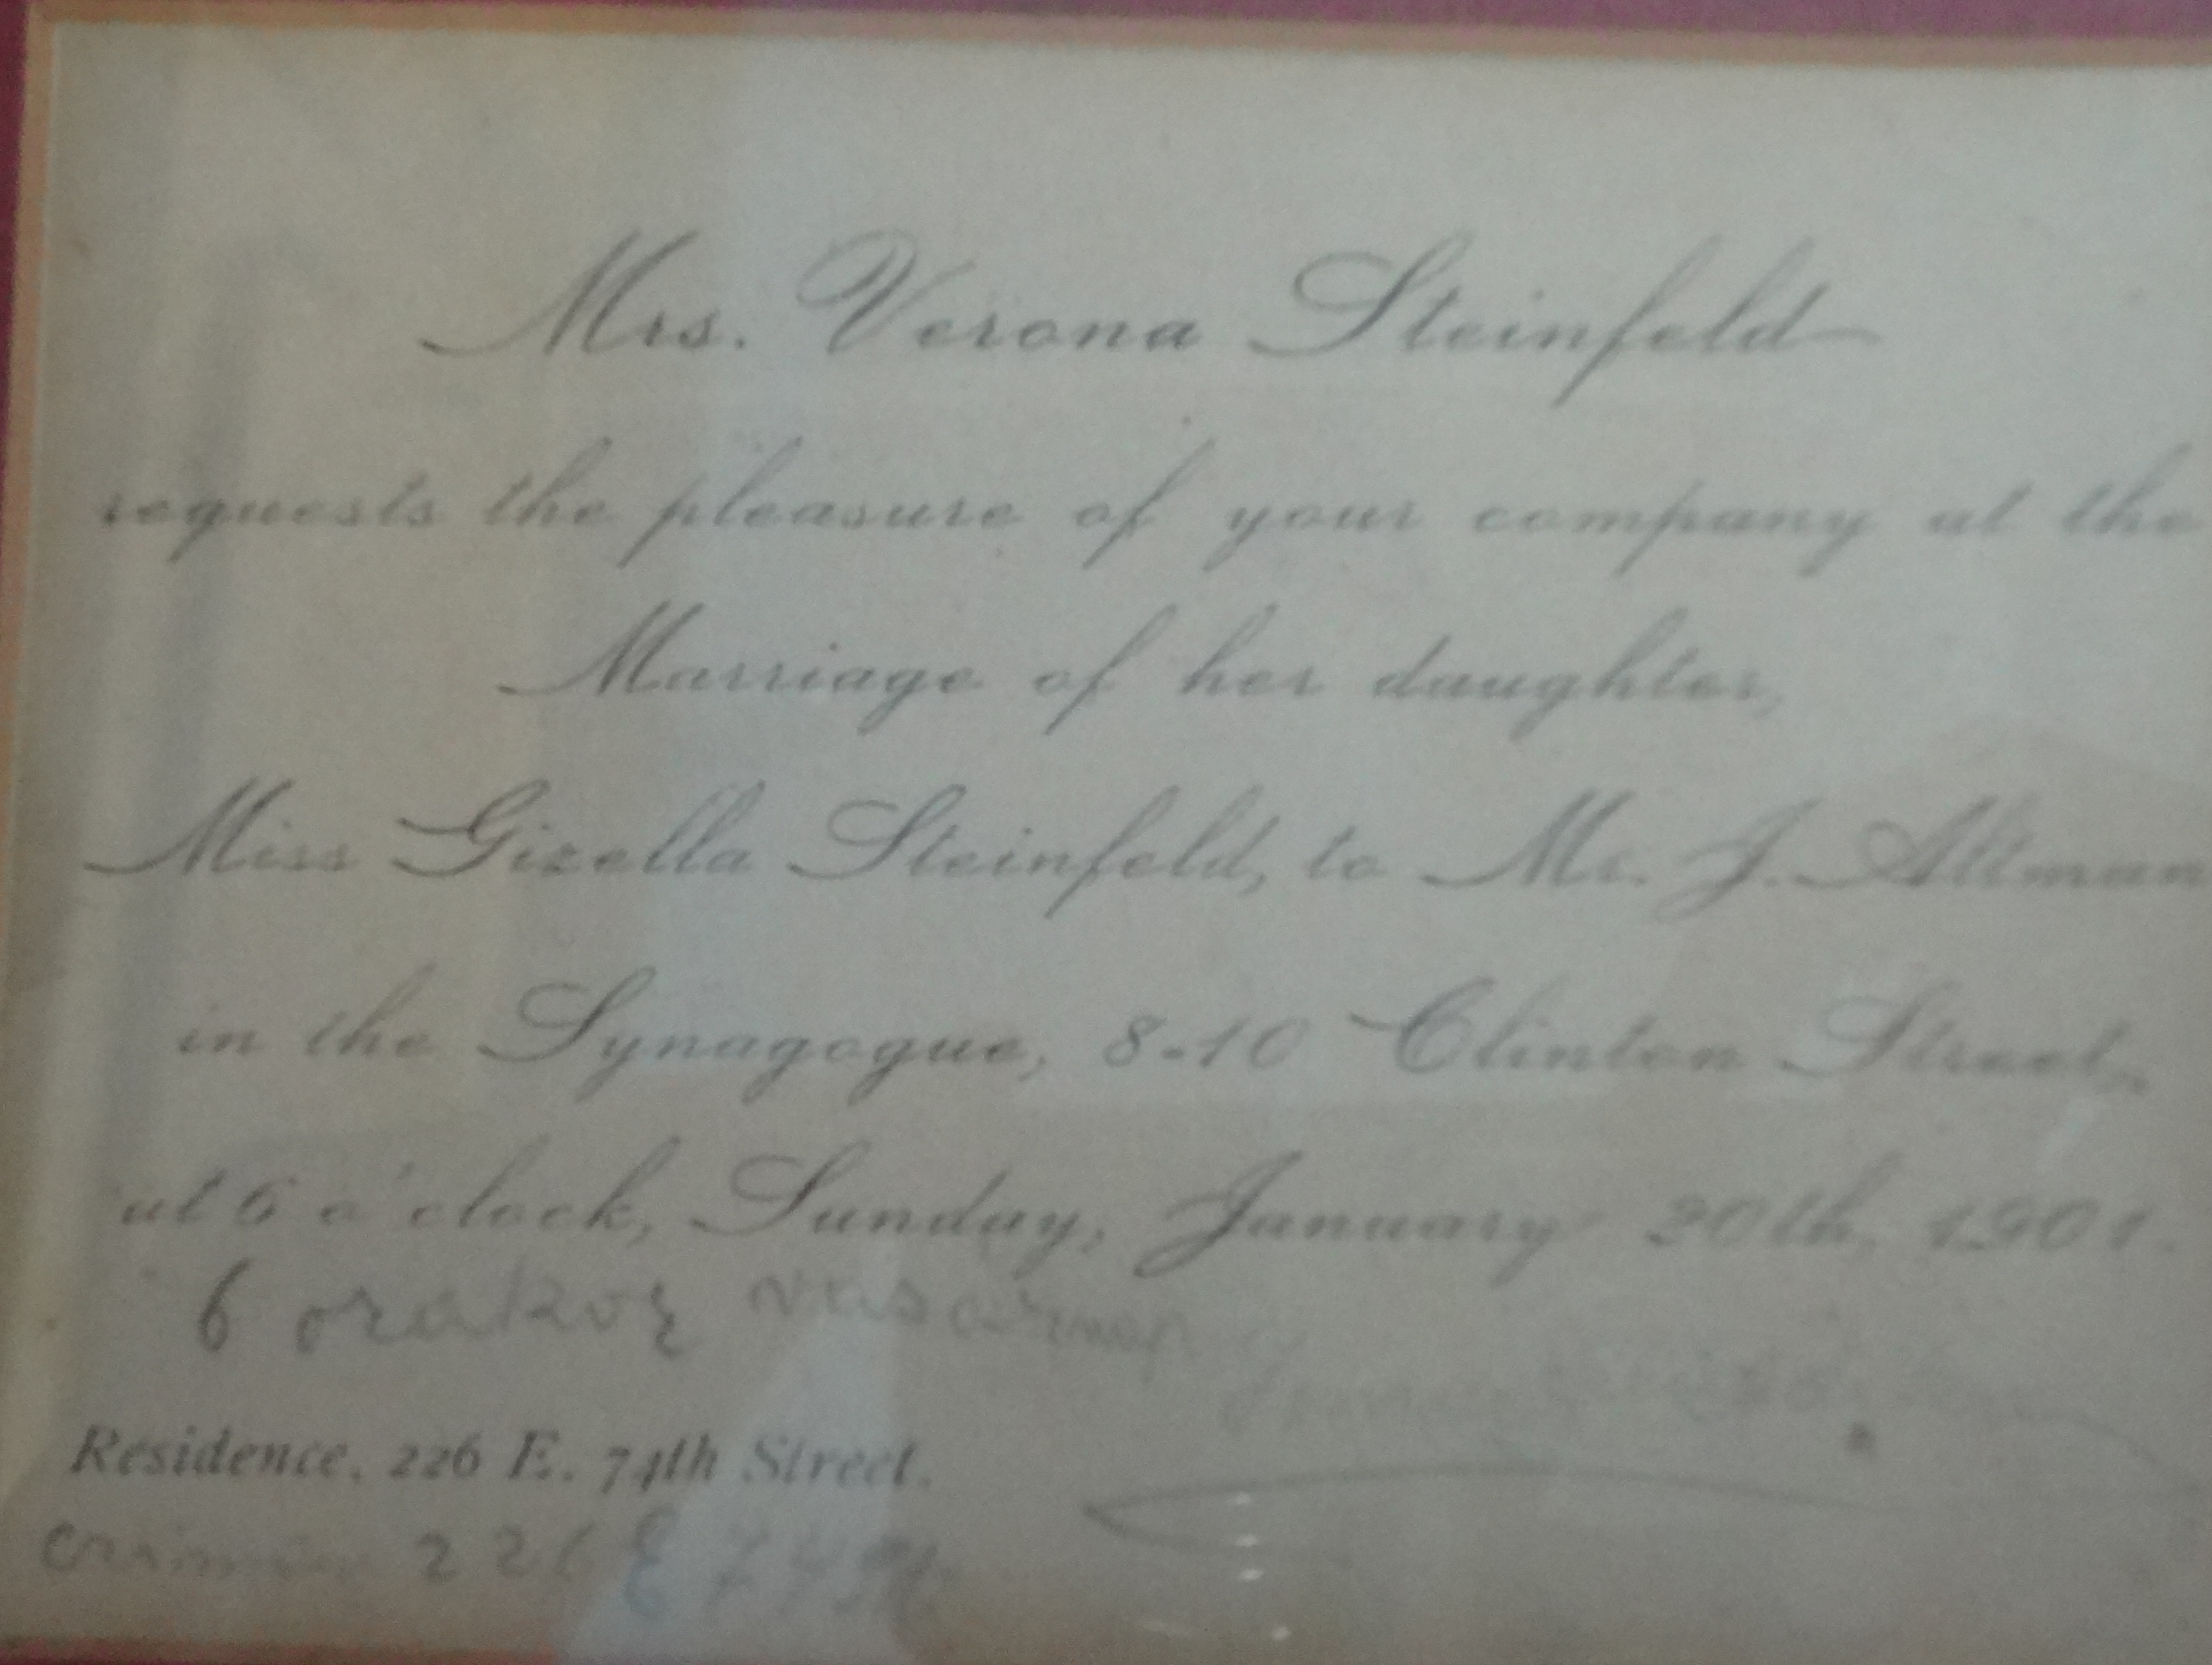 Mrs. Verona Steinfeld
requests the pleasure of your company at the
Marriage of her daughter,
Miss Gizella Steinfeld, to Mr. J. Altman
in the Synagogue, 8-10 Clinton Street,
at 6 o'clock, Sunday, January 20th, 1901.
6 orakor vasarnap
Residence, 226 E. 74th Street.
226 E 74